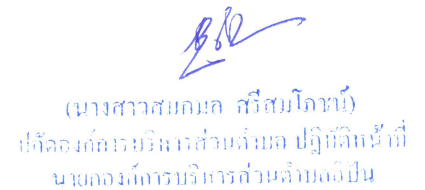 (นางสาวสมกมล ศรีสมโภชน์)
ปลัดองค์การบริหารส่วนตำบล ปฏิบัติหน้าที่
นายกองค์การบริหารส่วนตำบลอิปุ่น